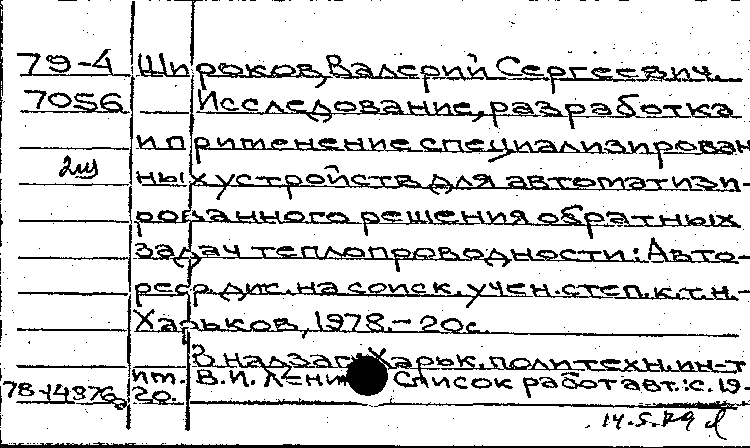 79-4 Широков, Валерий Сергеевич.
7056 Исследование, разработка
и применение специализирован
2ш ных устройств для автоматизи-
рованного решения обратных
задач теплопроводности: Авто-
реф. дис. на соиск. учен. степ. к.т.н.-
Харьков, 1978.- 20с.
В надзаг: Харьк. политехн. ин-т
им. В.И. Лени Список работ авт.: с. 19-
78-14876 20.
14.5.79